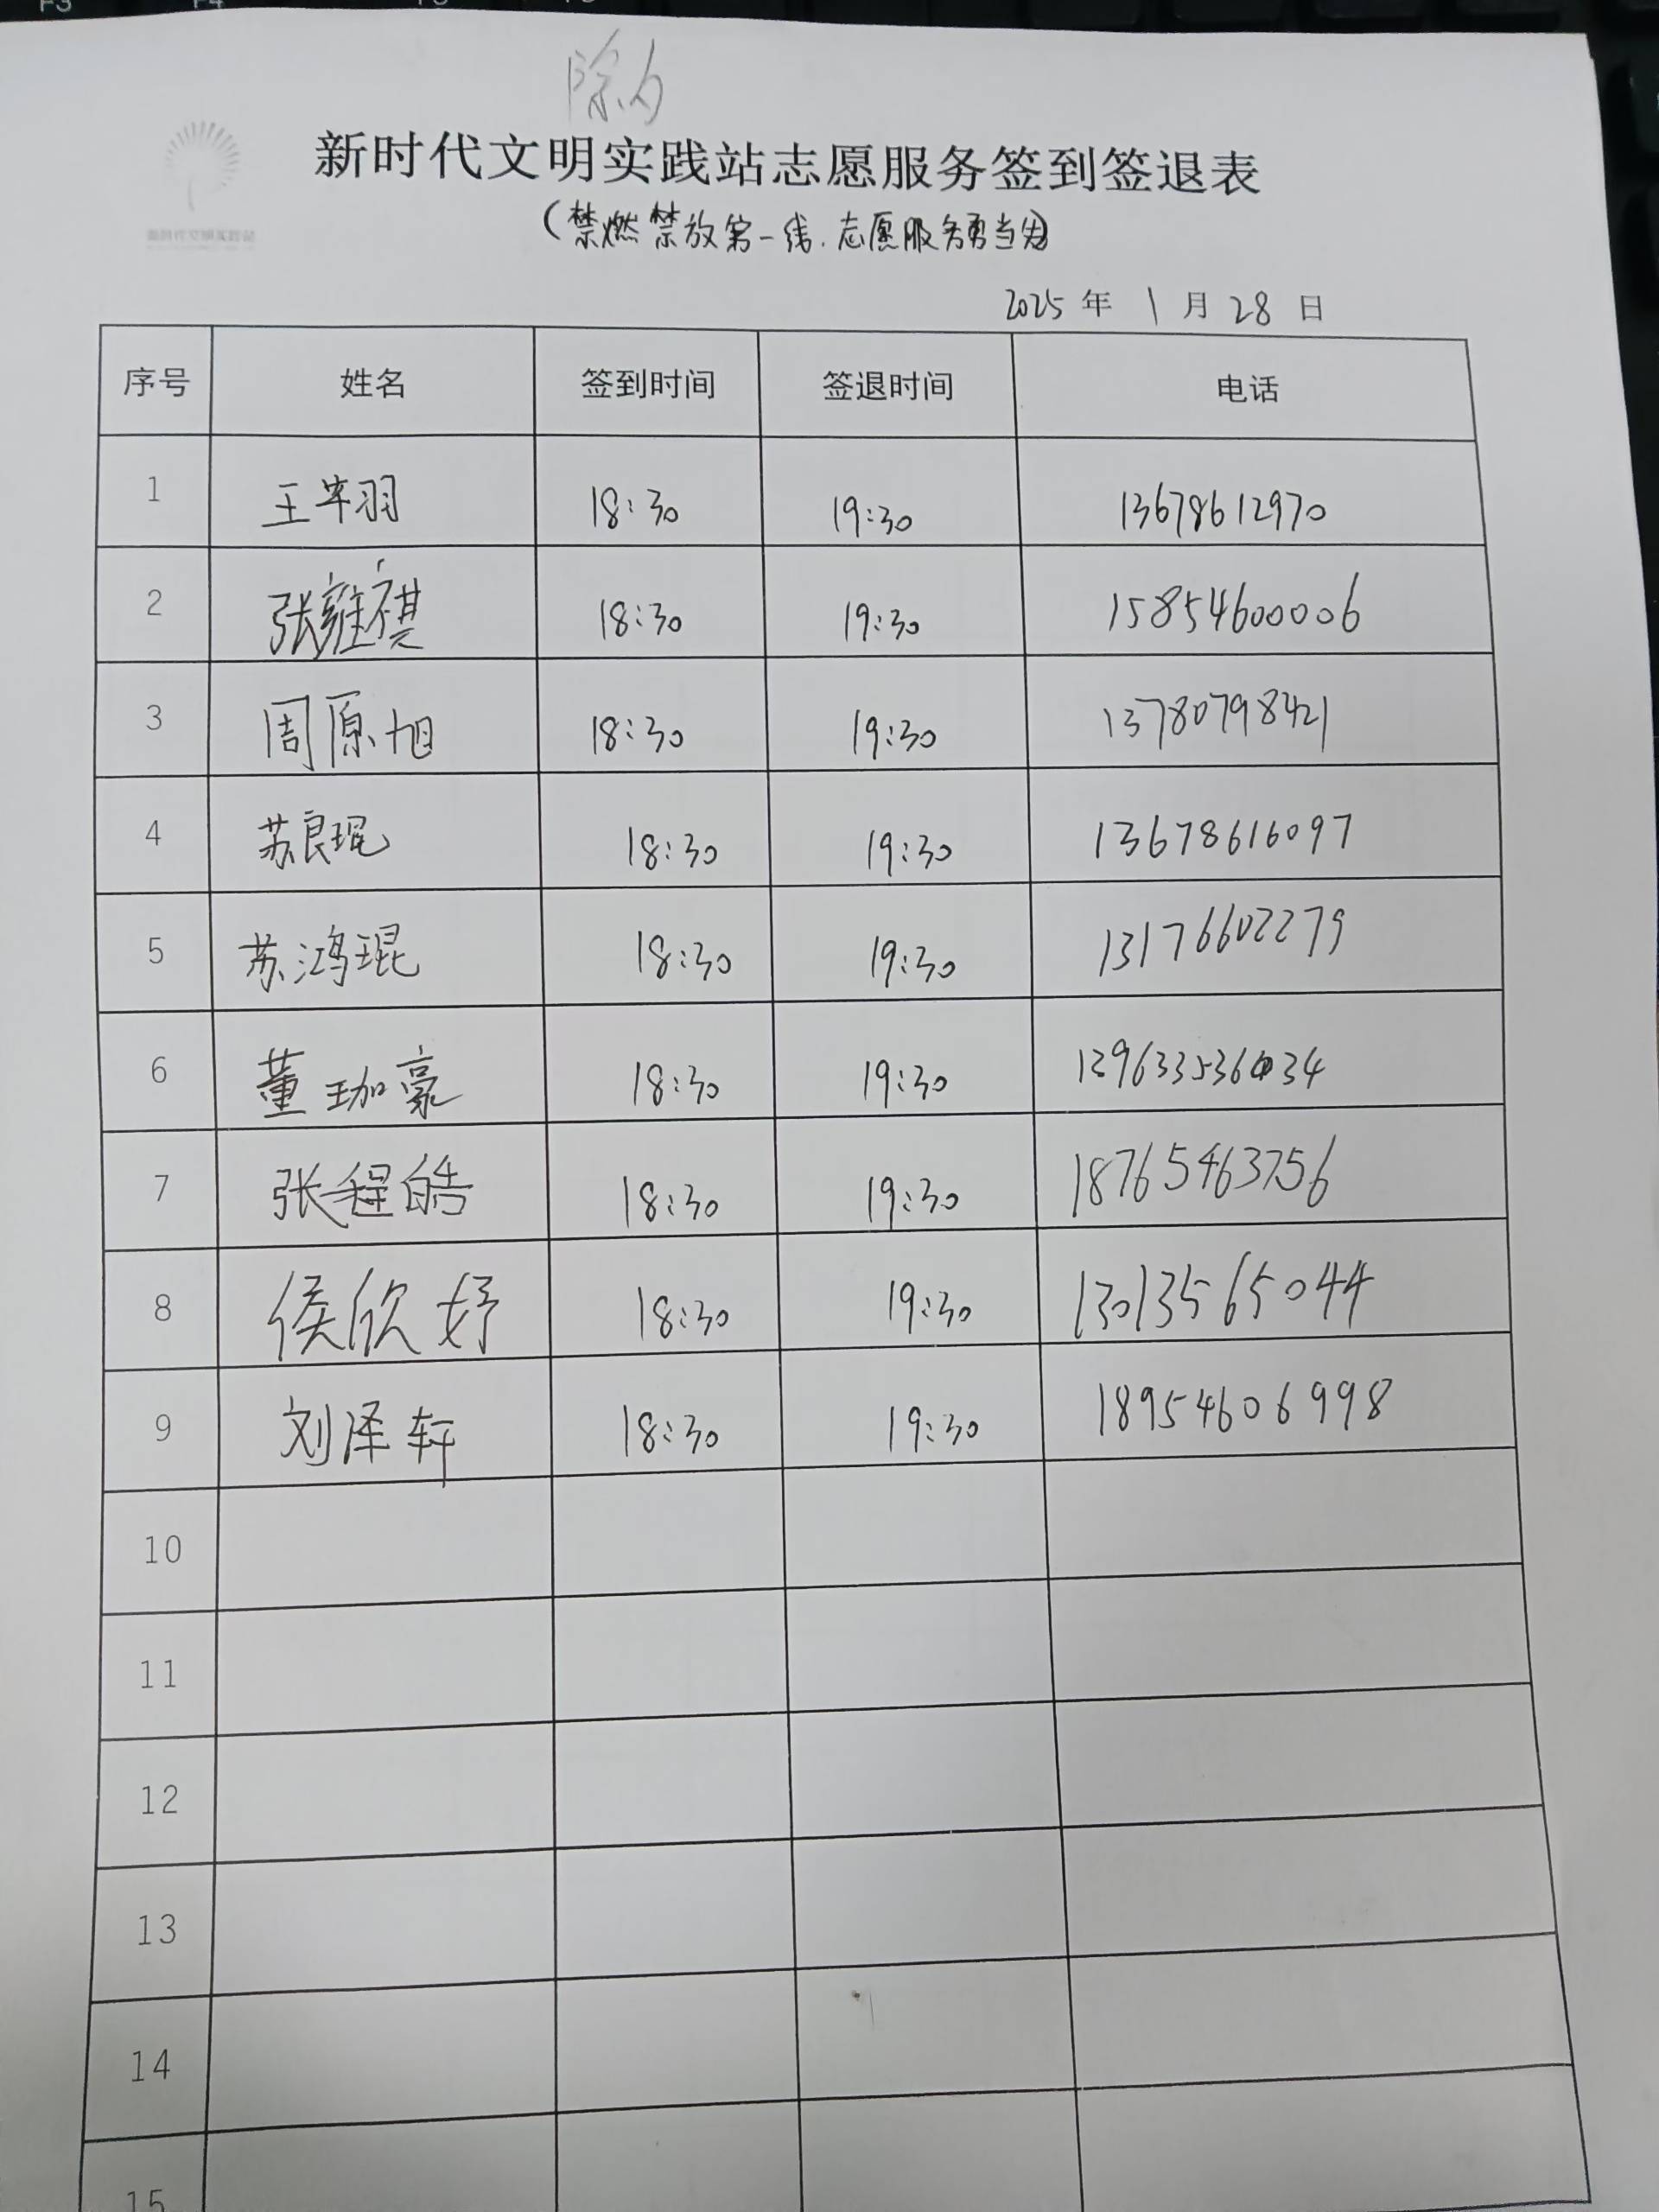 除夕
新时代文明实践站志愿服务签到签退表
(禁燃禁放第一线.志愿服务勇当先)
2025 年 1 月 28 日
序号 姓名 签到时间 签退时间 电话
1 王羽 18:30 19:30 13678612970
2 张雍祺 18:30 19:30 15854600006
3 周原旭 18:30 19:30 13780798421
4 苏良琨 18:30 19:30 13678616097
5 苏鸿琨 18:30 19:30 13176602279
6 董珈豪 18:30 19:30
7 张程皓 18:30 19:30 18765463756
8 侯欣妤 18:30 19:30 13013565044
9 刘泽轩 18:30 19:30 18954606998
10
11
12
13
14
15